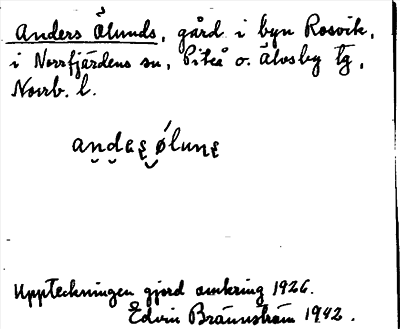 Anders Ölunds, gård i byn Rosvik,
i Norrfjärdens sn, Piteå o. Älvsby tg,
Norrb. l.
andas̨ øluns̨
Uppteckningen gjord omkring 1926.
Edvin Brännström 1942.